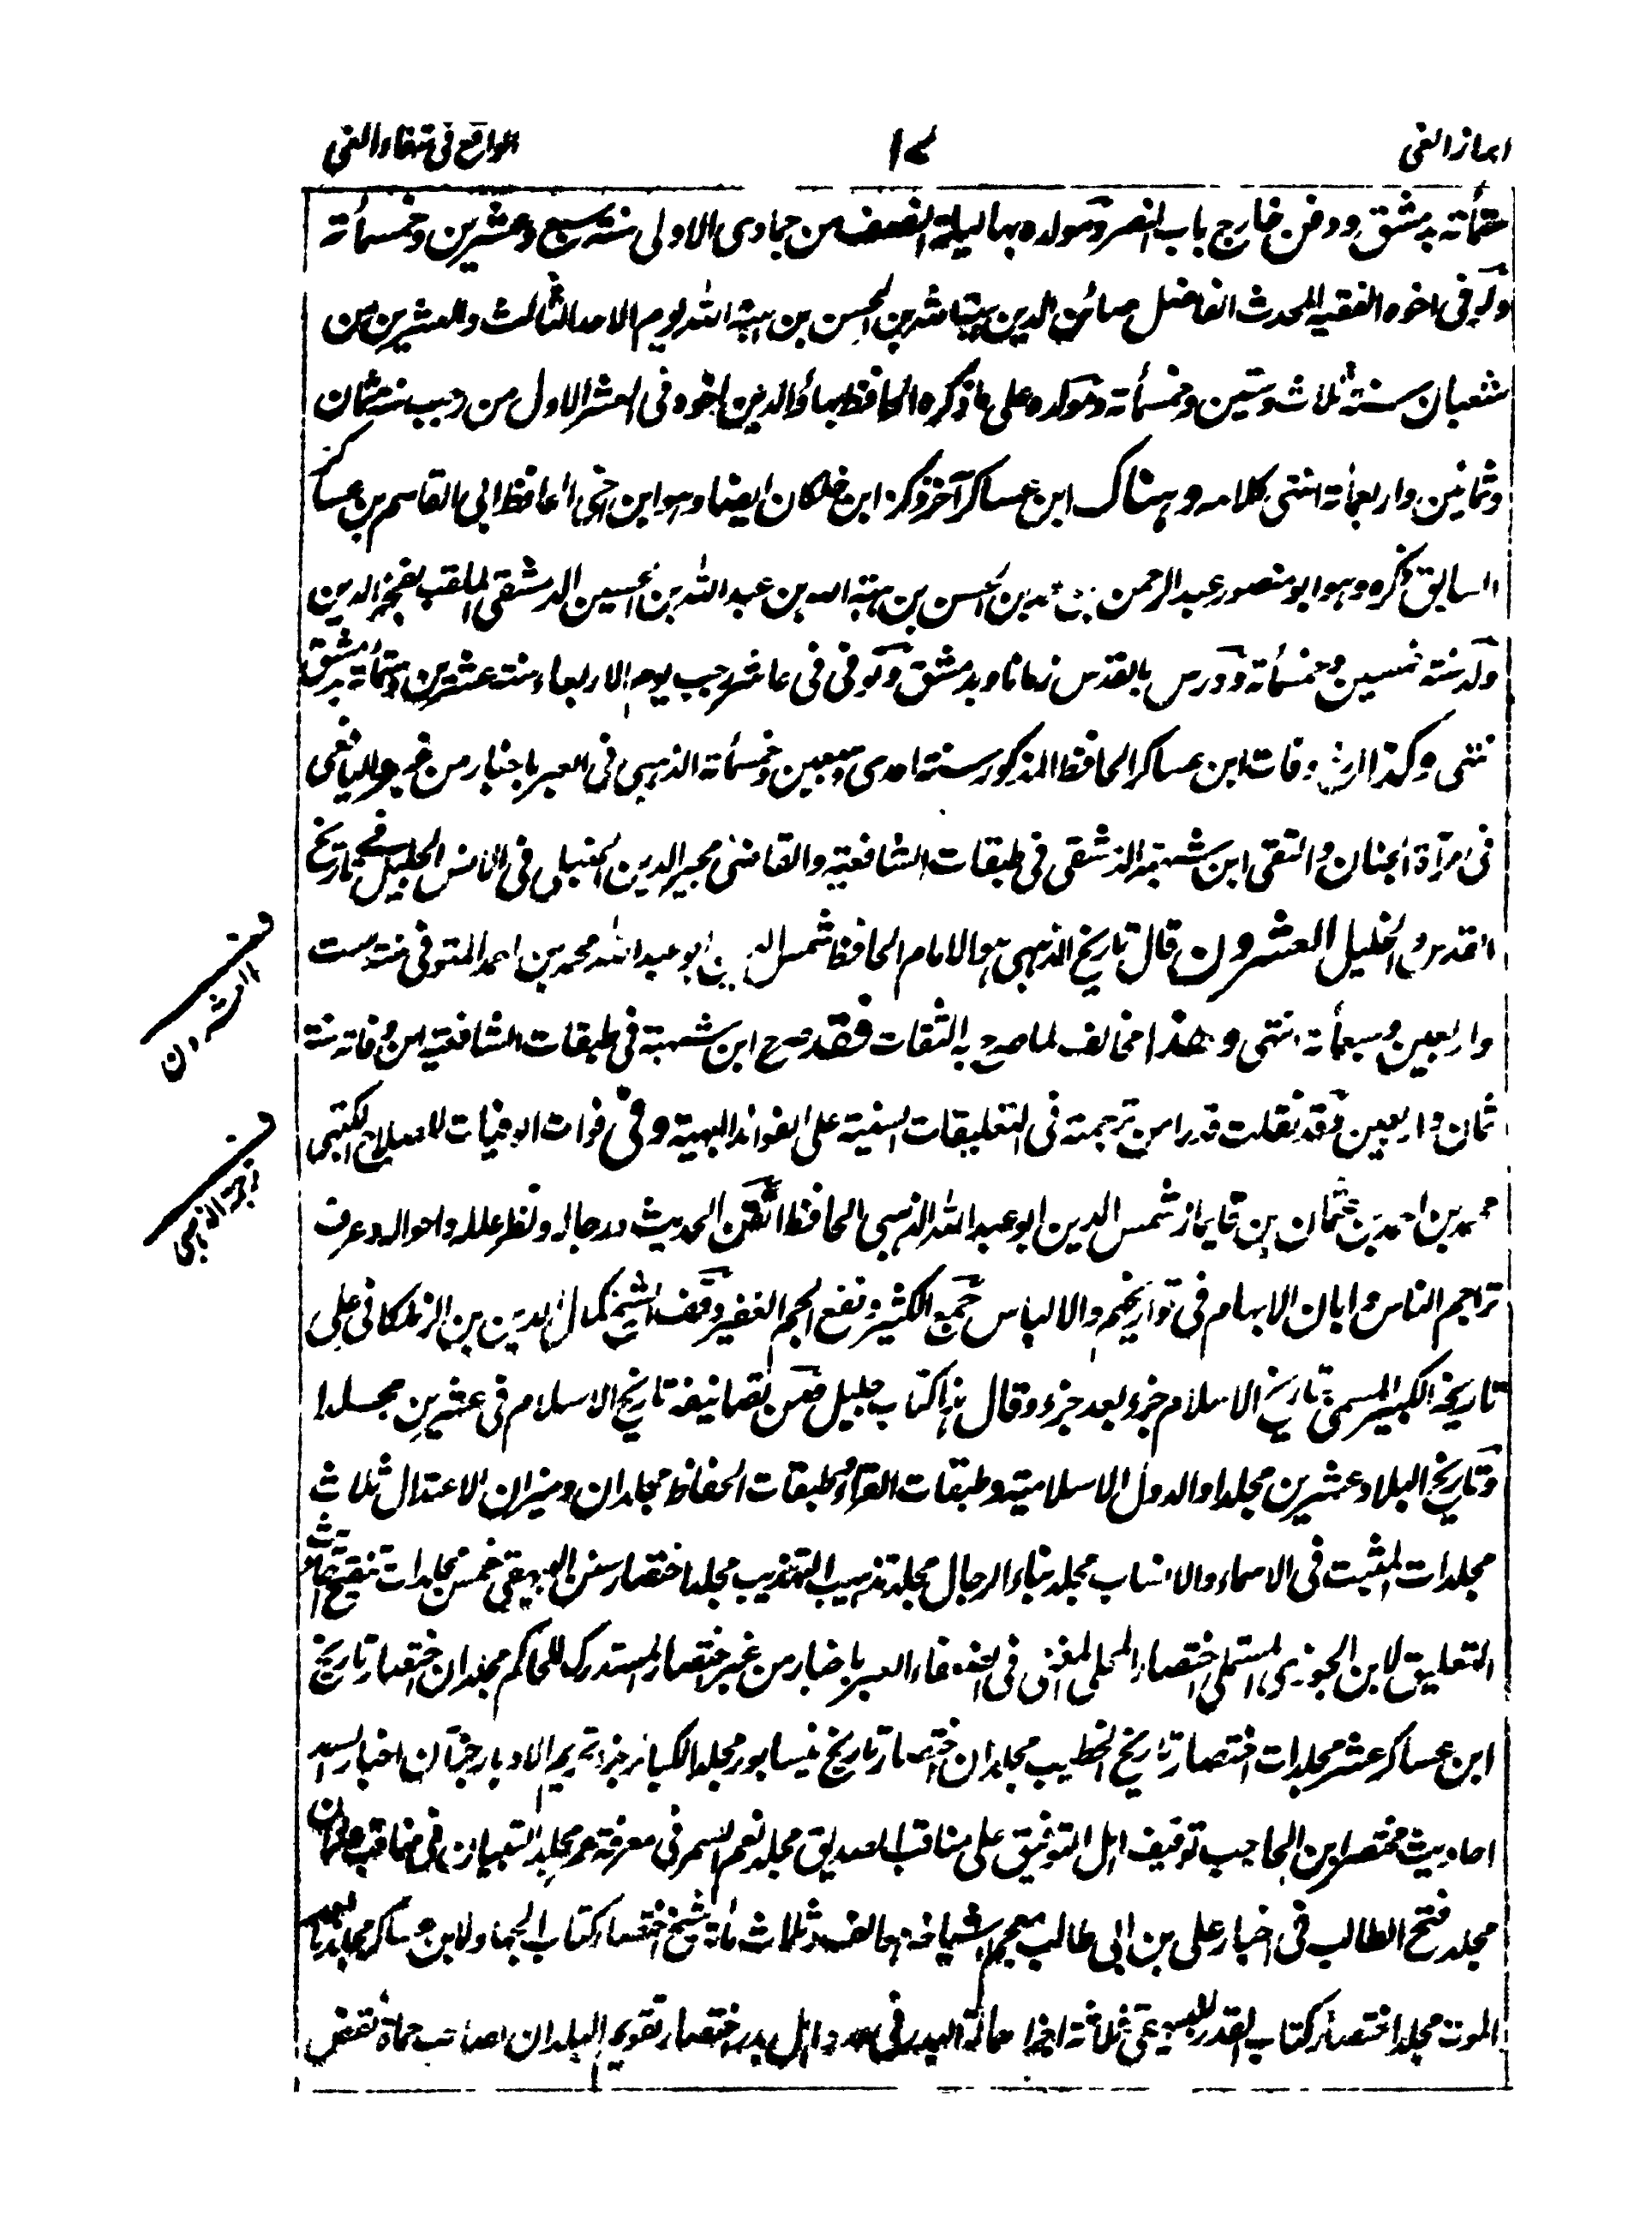 ابراز الغی ١٧ الواقع فی شفاء العی
ستمأته بدمشق ودفن خارج باب النصر ومولده بها لیلة النصف من جمادی الاولی سنة سبع وعشرین وخمسمأته
وتوفی اخوه الفقیه المحدث الفاضل صائن الدین هبة الله بن الحسن بن هبة الله یوم الاحد الثالث والعشرین من
شعبان سنة ثلاث وستین وخمسمأته ومولده علی ما ذکره الحافظ بهاؤ الدین اخوه فی العشر الاول من رجب سنة ثمان
وثمانین واربعمأته انتهی کلامه وهناک ابن عساکر آخر ذکره ابن خلکان ایضا وهو ابن اخی الحافظ ابی القاسم بن عساکر
السابق ذکره وهو ابو منصور عبد الرحمن بن محمد بن الحسن بن هبة الله بن عبد الله بن الحسین الدمشقی الملقب بفخر الدین
ولد سنة خمسین وخمسمأته ودرس بالقدس زمانا وبدمشق وتوفی فی عاشر رجب یوم الاربعاء سنة عشرین وستمأته بدمشق
نتهی وکذا ارخ وفات ابن عساکر الحافظ المذکور سنة احدی وسبعین وخمسمأته الذهبی فی العبر باخبار من غبر والیافعی
فی مرآة الجنان والتقی ابن شهبة الدمشقی فی طبقات الشافعیة والقاضی مجیر الدین الحنبلی فی الانس الجلیل فی تاریخ
القدس والخلیل العشرون قال تاریخ الذهبی هو الامام الحافظ شمس الدین ابو عبد الله محمد بن احمد المتوفی سنة ست
واربعین وسبعمأته انتهی وهذا مخالف لما صرح به الثقات فقد صرح ابن شهبة فی طبقات الشافعیة ان وفاته سنة
ثمان واربعین وقد نقلت قدرا من ترجمته فی التعلیقات السنیة علی الفوائد البهیة وفی فوات الوفیات للصلاح الکتبی
محمد بن احمد بن عثمان بن قایماز شمس الدین ابو عبد الله الذهبی الحافظ اتقن الحدیث ورجاله ونظر علله واحواله وعرف
تراجم الناس وابان الابهام فی تواریخهم والالباس جمع الکثیر ونفع الجم الغفیر وقف الشیخ کمال الدین بن الزملکانی علی
تاریخه الکبیر المسمی بتاریخ الاسلام جزء بعد جزء وقال هذا کتاب جلیل فمن تصانیفه تاریخ الاسلام فی عشرین مجلدا
وتاریخ البلاد عشرین مجلدا والدول الاسلامیة وطبقات القراء وطبقات الحفاظ مجلدان ومیزان الاعتدال ثلاث
مجلدات المثبت فی الاسماء والانساب مجلد نباء الرجال مجلد تذهیب التهذیب مجلد اختصار سنن البیهقی خمس مجلدات تنقیح احادیث
التعلیق لابن الجوزی المستحلی اختصار المحلی المغنی فی الضعفاء العبر باخبار من غبر اختصار المستدرک للحاکم مجلدان اختصار تاریخ
ابن عساکر عشر مجلدات اختصار تاریخ الخطیب مجلدان اختصار تاریخ نیسابور مجلد الکبائر جزء تحریم الادبار جزآن اخبار السد
احادیث مختصر ابن الحاجب توقیف اهل التوفیق علی مناقب الصدیق مجلد نعم السمر فی معرفة عمر مجلد التبیان فی مناقب عثمان
مجلد فتح الطالب فی اخبار علی بن ابی طالب معجم اشیاخه وهم الف وثلاث مأة شیخ اختصار کتاب الجهاد لابن عساکر مجلد ما بعد
الموت مجلد اختصار کتاب القدر للبیهقی ثلاثة اجزاء هالة البدر فی عدد اهل بدر اختصار تقویم البلدان لصاحب حماة نقض
العشرون
ترجمة الذهبی